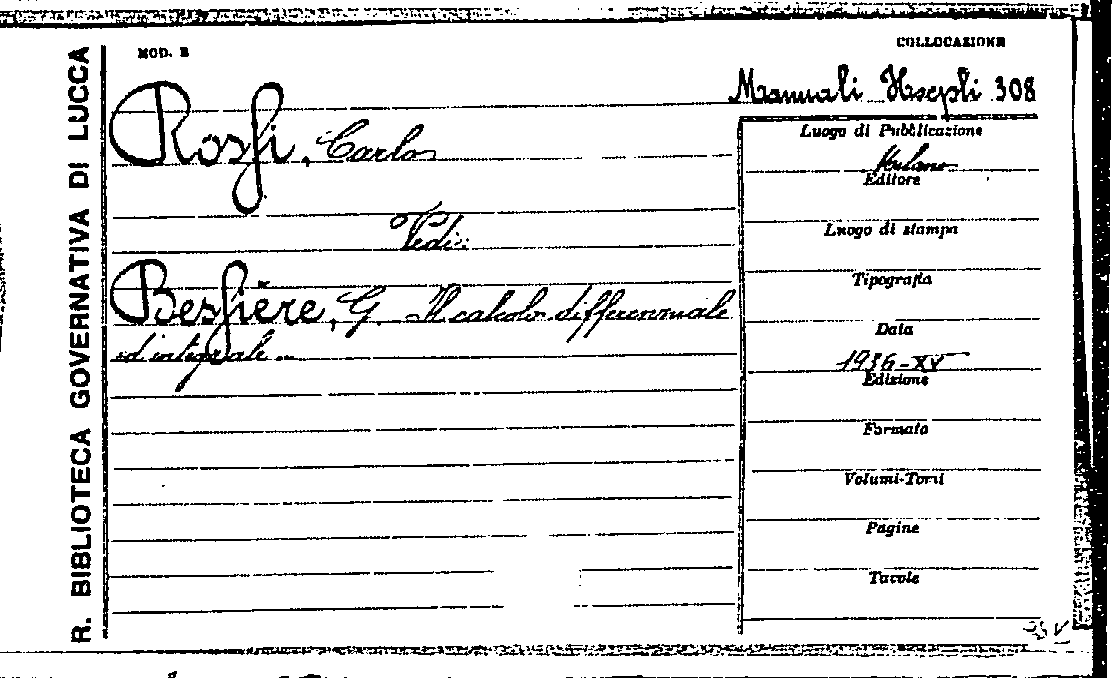 R. BIBLIOTECA GOVERNATIVA DI LUCCA
MOD. B
COLLOCAZIONE
Manuali Hoepli 308
Rossi, Carlo
Vedi:
Bessière, G. Il calcolo differenziale
ed integrale..
Luogo di Pubblicazione
Milano
Editore
Luogo di stampa
Tipografia
Data
1936-XV
Edizione
Formato
Volumi-Tomi
Pagine
Tavole